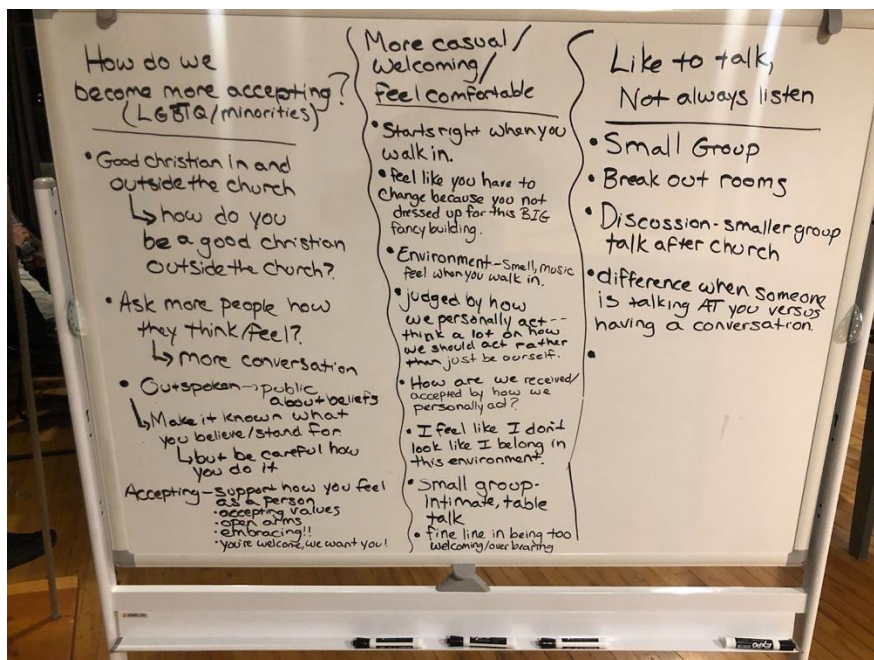 How do we
become more accepting?
(LGBTQ/minorities)
• Good christian in and
outside the church
↳ how do you
be a good christian
outside the church?
• Ask more people how
they think/feel?
↳ more conversation
• Outspoken → public
about beliefs
↳ Make it known what
you believe/stand for
↳ but be careful how
you do it
Accepting - support how you feel
as a person
• accepting values
• open arms
• embracing!!
• you're welcome, we want you!
More casual/
welcoming/
feel comfortable
• Starts right when you
walk in.
• feel like you have to
change because you not
dressed up for this BIG
fancy building.
• Environment - Small, music
feel when you walk in.
• judged by how
we personally act --
think a lot on how
we should act rather
than just be ourself.
• How are we received/
accepted by how we
personally act?
• I feel like I don't
look like I belong in
this environment.
• Small group -
Intimate, table
talk
• fine line in being too
welcoming/over bearing
Like to talk,
Not always listen
• Small Group
• Break out rooms
• Discussion - smaller group
talk after church
• difference when someone
is talking AT you versus
having a conversation.
•
EXPO